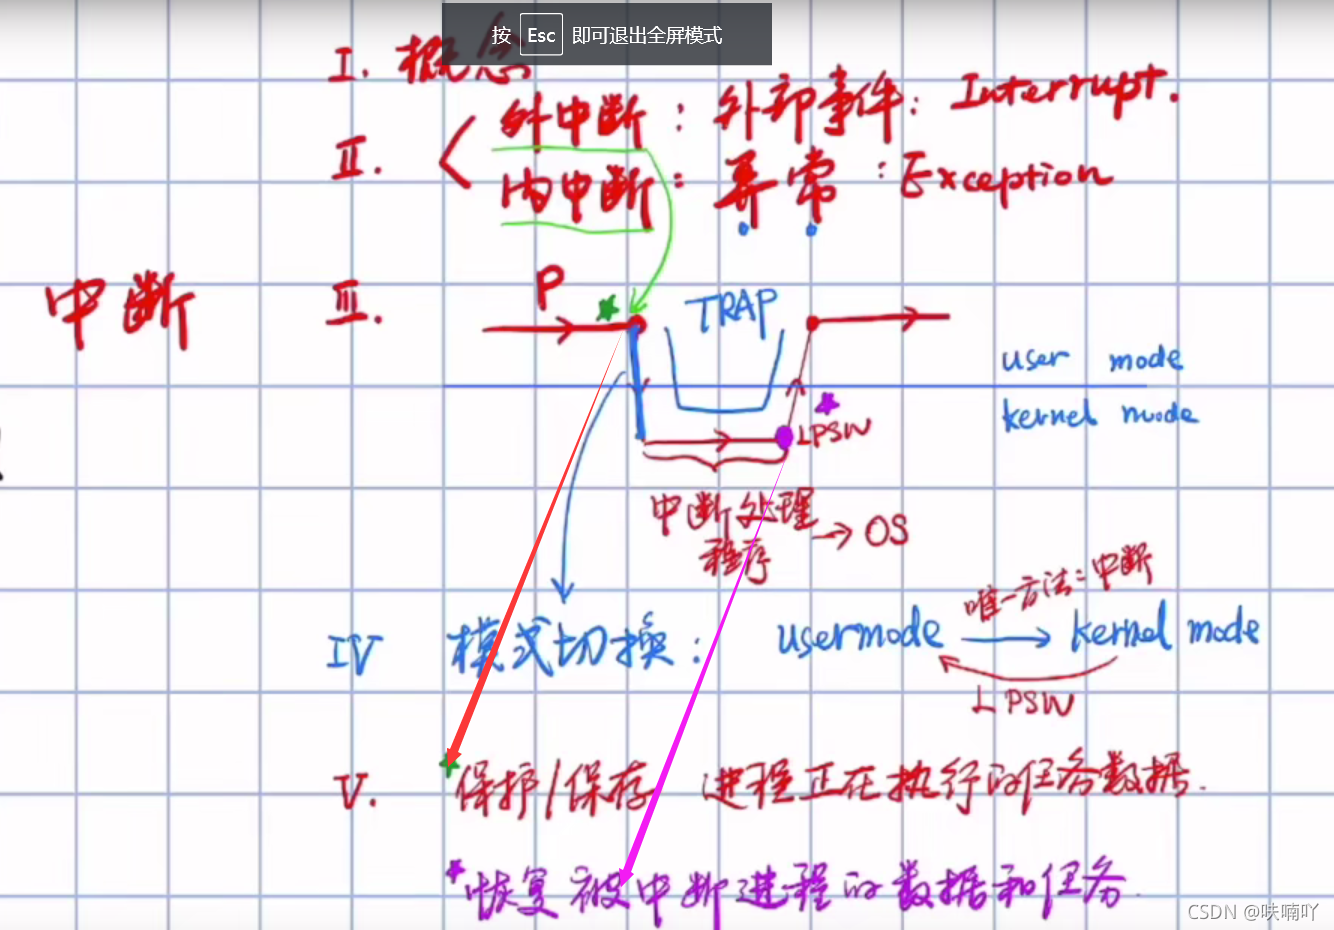 按 Esc 即可退出全屏模式
I. 概念
II. 外中断：外部事件：Interrupt.
内中断：异常：Exception
中断
III.
P
TRAP
user mode
kernel mode
LPSW
中断处理
程序 → OS
唯一方法：中断
IV 模式切换： usermode → kernel mode
LPSW
V. 保护/保存 进程正在执行的任务数据.
恢复被中断进程的数据和任务.
CSDN @呋喃吖